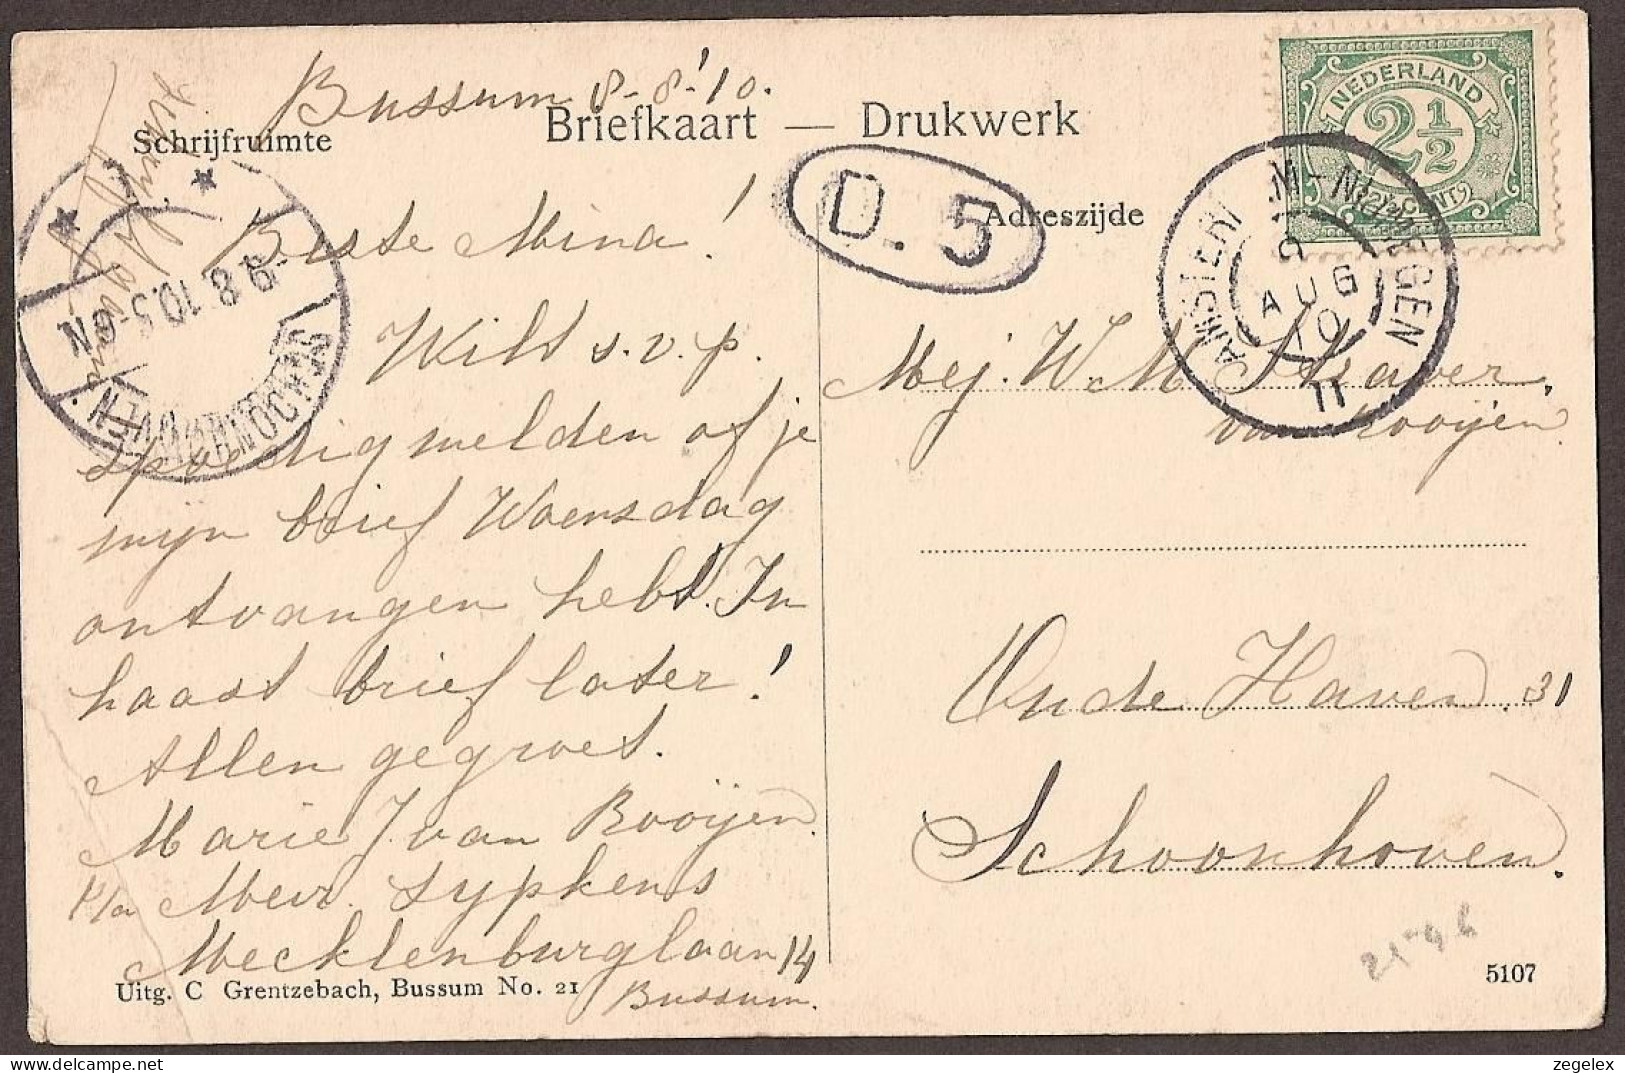 Bussum 8-8-'10.
Schrijfruimte
Briefkaart — Drukwerk
Adreszijde
D. 5
NEDERLAND
2½
AMSTERDAM-NIJMEGEN
9 AUG 10
11
SCHOONHOVEN
-9.8.10.5-6N
Beste Mina!
Wilt s.v.p.
spoedig melden of je
mijn brief Woensdag
ontvangen hebt. In
haast brief later!
Allen gegroet.
Marie J. van Rooijen.
p/a Mevr. Sypkens
Mecklenburglaan 14
Bussum.
Uitg. C Grentzebach, Bussum No. 21
Mej. W. M. Straver,
van Rooijen.
Oude Haven. 31
Schoonhoven.
5107
zegelex